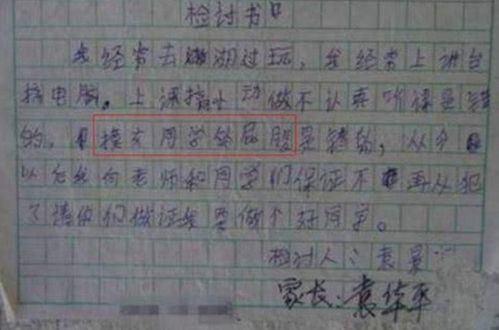 检讨书
我经常去湖边玩，我经常上讲台
搞电脑。上课搞小动做不认真听课是错
的。摸女同学的屁股是错的，从今
以后我向老师和同学们保证不再从犯
了请你们做证我要做个好同学。
检讨人：袁
家长：袁华平